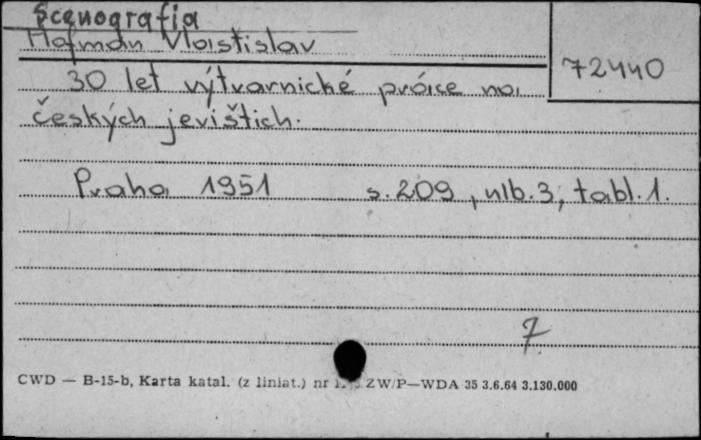 Scenografia
Hofman Vlastislav
72440
30 let výtvarnické práce na
českých jevištich.
Praha 1951 s. 209, nlb. 3, tabl. 1.
7
CWD — B-15-b, Karta katal. (z liniat.) nr ZW/P—WDA 35 3.6.64 3.130.000